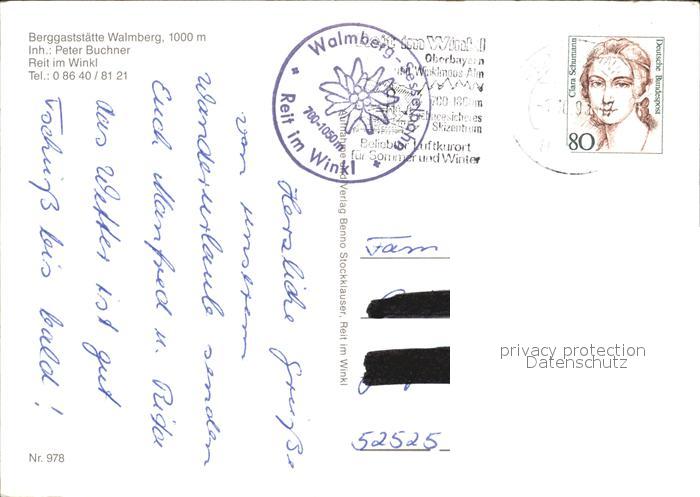 Berggaststätte Walmberg, 1000 m
Inh.: Peter Buchner
Reit im Winkl
Tel.: 0 86 40 / 81 21
Walmberg-Sesselbahn
700-1050m
Reit im Winkl
Reit im Winkl
Oberbayern
mit Winklmoos-Alm
700-1800m
Schneesicheres
Skizentrum
Beliebter Luftkurort
für Sommer und Winter
Clara Schumann
Deutsche Bundespost
80
Herzliche Grüße
von unserem
Wanderurlaub senden
Euch Manfred u. Rita
das Wetter ist gut
Tschüß bis bald!
Aufnahme und Verlag Benno Stockklauser, Reit im Winkl
Fam
52525
privacy protection
Datenschutz
Nr. 978